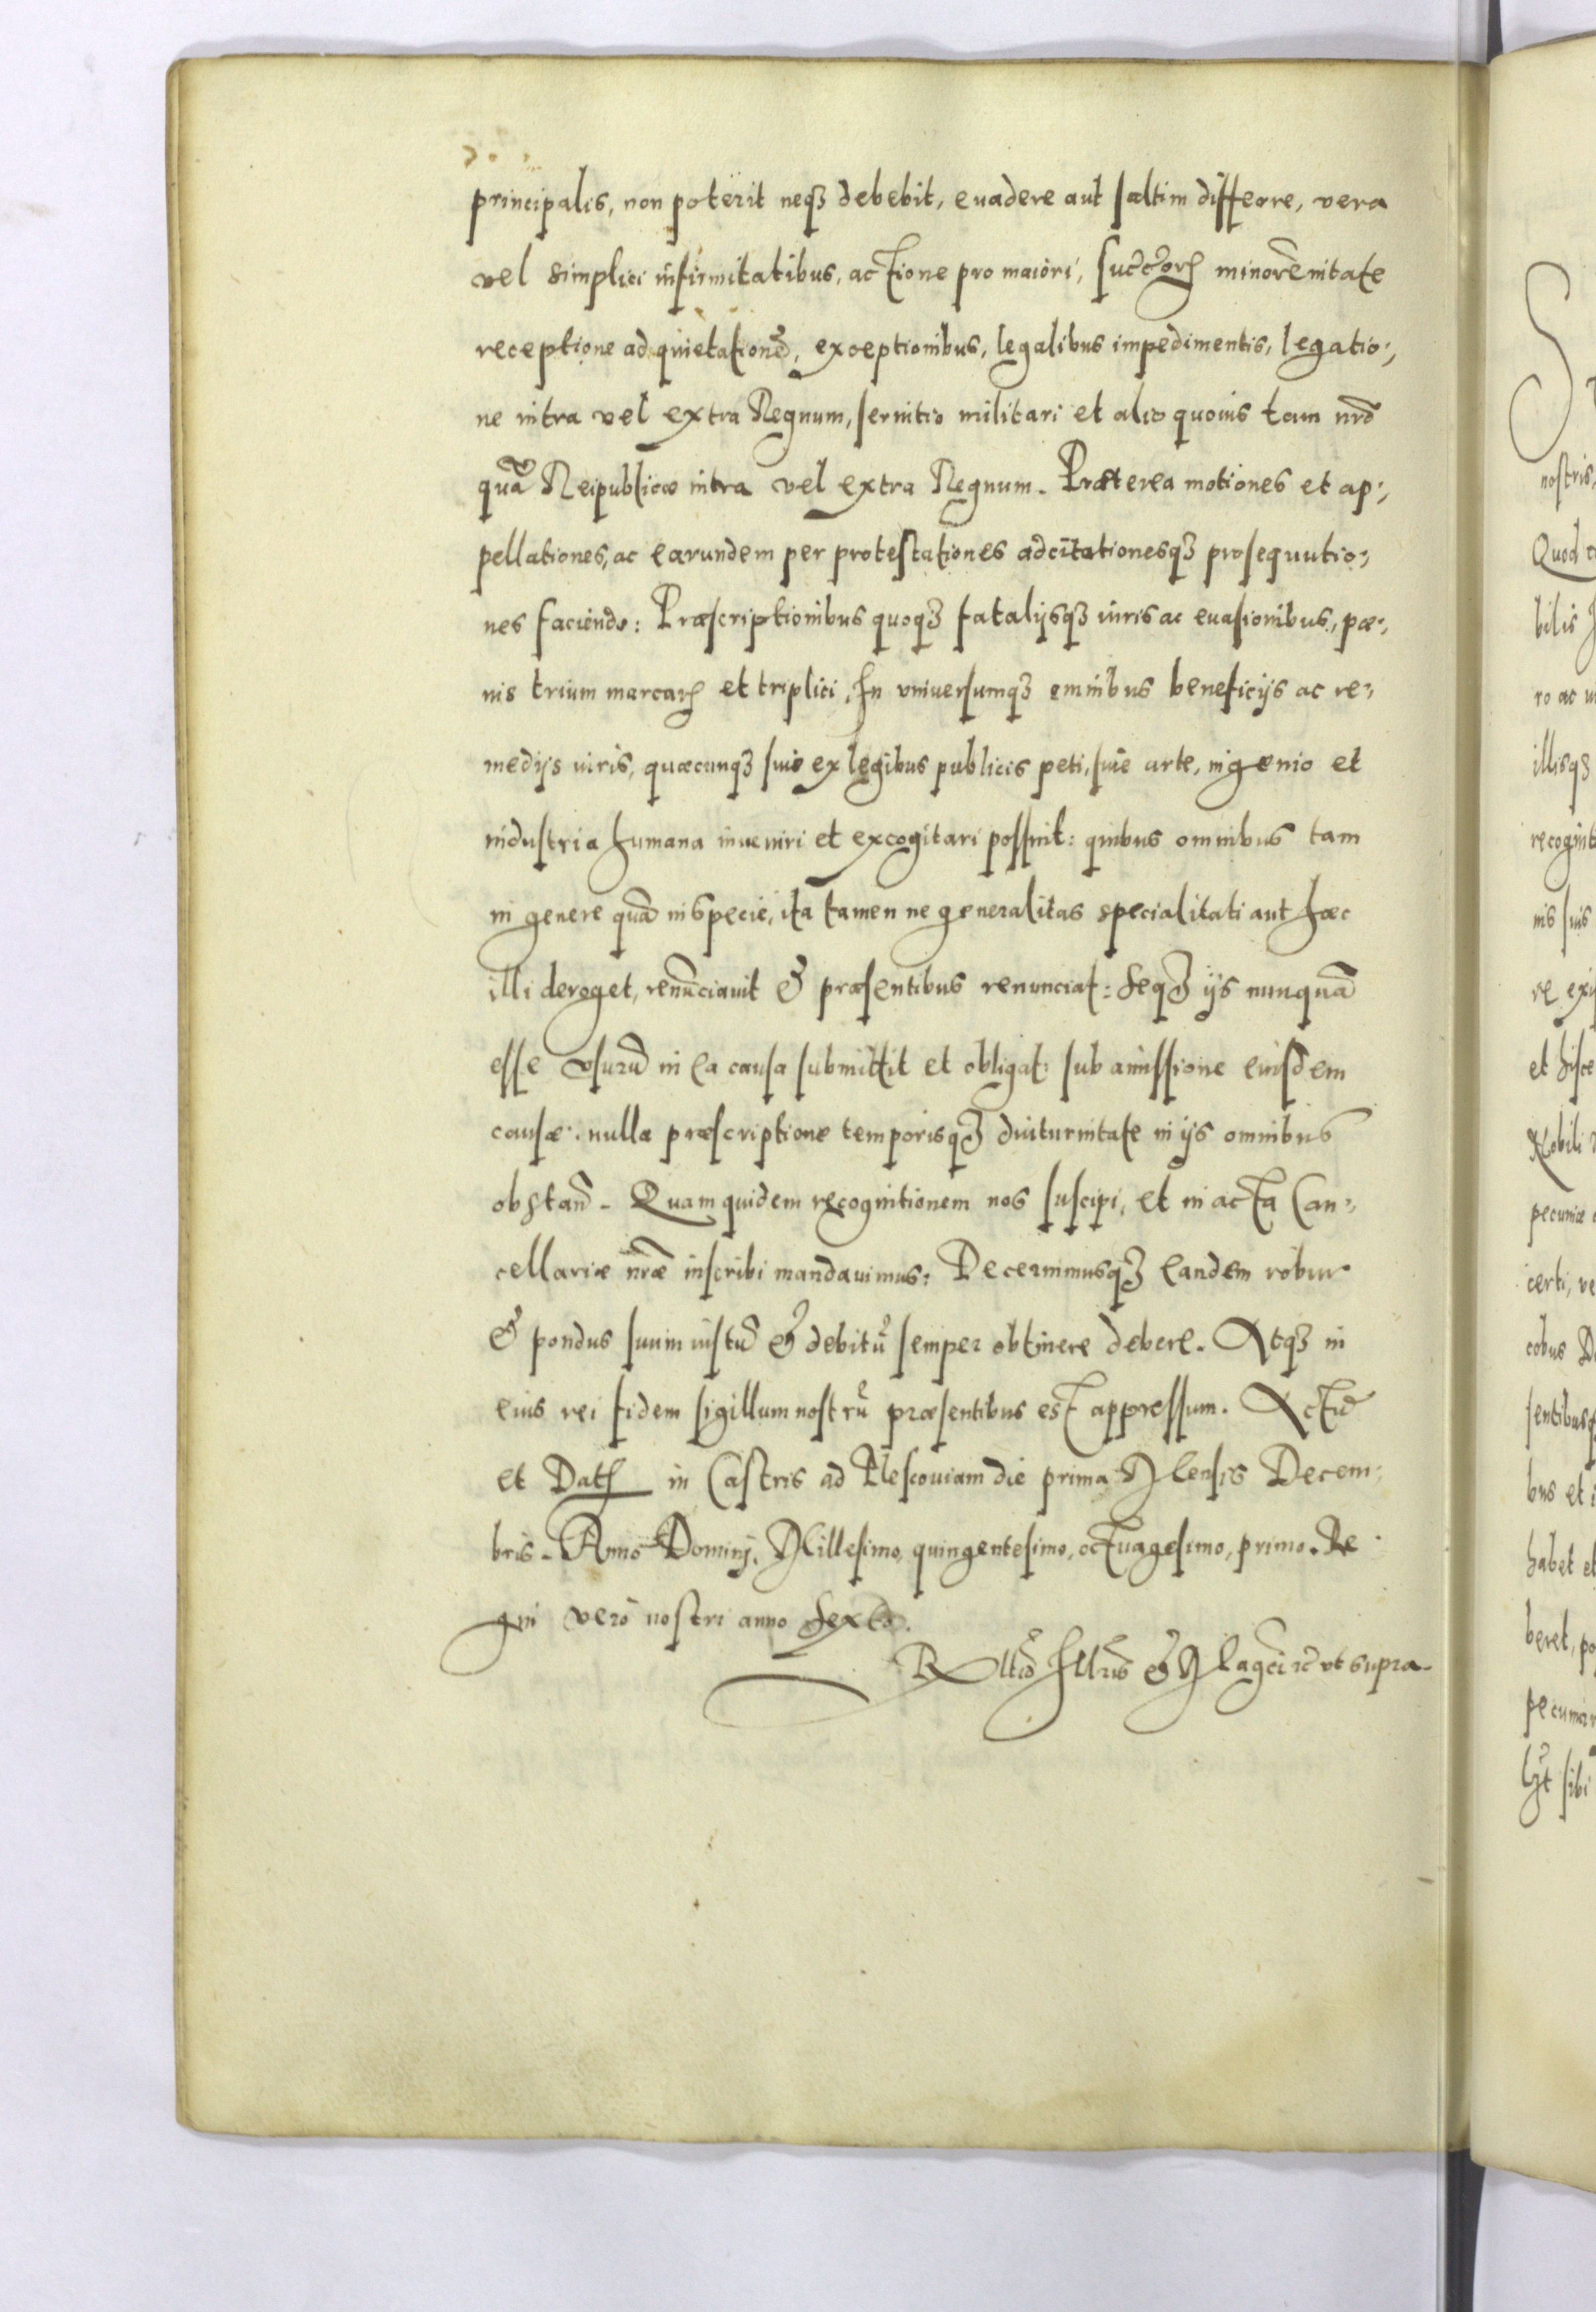 principalis, non poterit neqꝫ debebit, euadere aut saltim differre, vera
vel simplici infirmitatibus, actione pro maiori, succorꝝ minorenitate
receptione ad quietationē, exceptionibus, legalibus impedimentis, legatio-
ne intra vel extra Regnum, seruitio militari et alio quouis tam nrō
quā Reipublicæ intra vel extra Regnum. Præterea motiones et ap-
pellationes, ac earundem per protestationes adcitationesqꝫ prosequutio-
nes faciendo: Præscriptionibus quoqꝫ fatalijsqꝫ iuris ac euasionibus, pæ-
nis trium marcarꝝ et triplici, In vniuersumqꝫ omnibus beneficijs ac re-
medijs iuris, quæcunqꝫ siue ex legibus publicis peti, siue arte, ingenio et
industria humana inueniri et excogitari possint: quibus omnibus tam
in genere quā in specie, ita tamen ne generalitas specialitati aut hæc
illi deroget, renūciauit & præsentibus renunciat: seqꝫ ijs nunquā
esse vsurū in ea causa submittit et obligat sub amissione eiusdem
causæ. nulla præscriptione temporisqꝫ diuturnitate in ijs omnibus
obstan̄. Quam quidem recognitionem nos suscipi, et in acta Can-
cellariæ nr̄æ inscribi mandauimus: Decernimusqꝫ eandem robur
& pondus suum iustū & debitū semper obtinere debere. Atqꝫ in
eius rei fidem sigillum nostrū præsentibus est appressum. Actū
et Datꝭ in Castris ad Plescouiam die prima Mensis Decem-
bris. Anno Dominj, Millesimo, quingentesimo, octuagesimo, primo. Re
gni verò nostri anno sexto.
Rltio Illris & Magci rc̄ vt supra.
nostris,
Quod
bilis
ro ac
illisqꝫ
nis suis
re
et hisce
Nobili
pecuniæ
certi, ve
cobus
bus et
habet et
beret, po
sibi